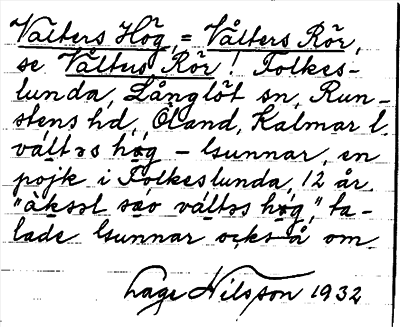 Valters Hög, = Vålters Rör,
se Vålters Rör! Folkes-
lunda, Långlöt sn, Run-
stens hd, Öland, Kalmar l.
váltəs høg – Gunnar, en
pojk i Folkeslunda, 12 år.
"àksəl sæo váltəs høg," ta-
lade Gunnar också om.
Lage Nilsson 1932